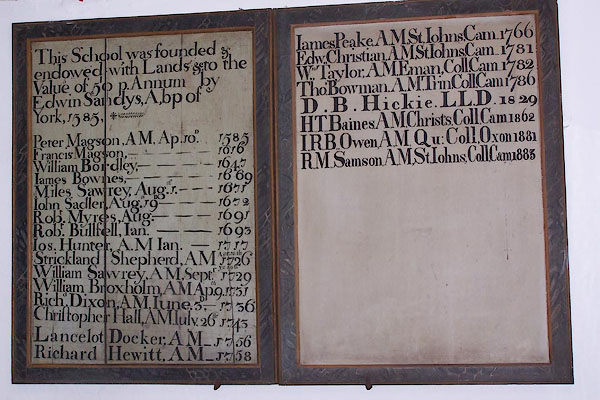 This School was founded &
endowed with Lands &c to the
Value of 50 p. Annum by
Edwin Sandys, A.bp of
York, 1585.
Peter Magson, A.M, Ap. 10. 1585
Francis Magson, 1616
William Bordley, 1647
James Bownes, 1669
Miles Sawrey, Aug. 1. 1671
John Sadler, Aug. 19 1672
Rob. Myres, Aug. 1691
Rob. Bullfell, Ian. 1693
Ios. Hunter, A.M Ian. 1717
Strickland Shepherd, A.M 1726
William Sawrey, A.M, Sept. 1729
William Broxholm, A.M Ap. 9 1731
Rich.d Dixon, A.M, Iune. 3. 1736
Christopher Hall, A.M Iuly. 26 1743
Lancelot Docker, A.M 1756
Richard Hewitt, A.M 1758
Iames Peake, A.M, St. Iohns, Cam. 1766
Edw. Christian, A.M St Iohns Cam. 1781
Wm. Taylor, A.M Eman, Coll Cam 1782
Tho. Bowman, A.M Trin Coll Cam 1786
D. B. Hickie. LL.D. 1829
H.T Baines, A.M Christs, Coll Cam 1862
I.R.B. Owen, A.M Qu: Coll, Oxon 1881
R.M. Samson A.M, St. Iohns, Coll. Cam 1883